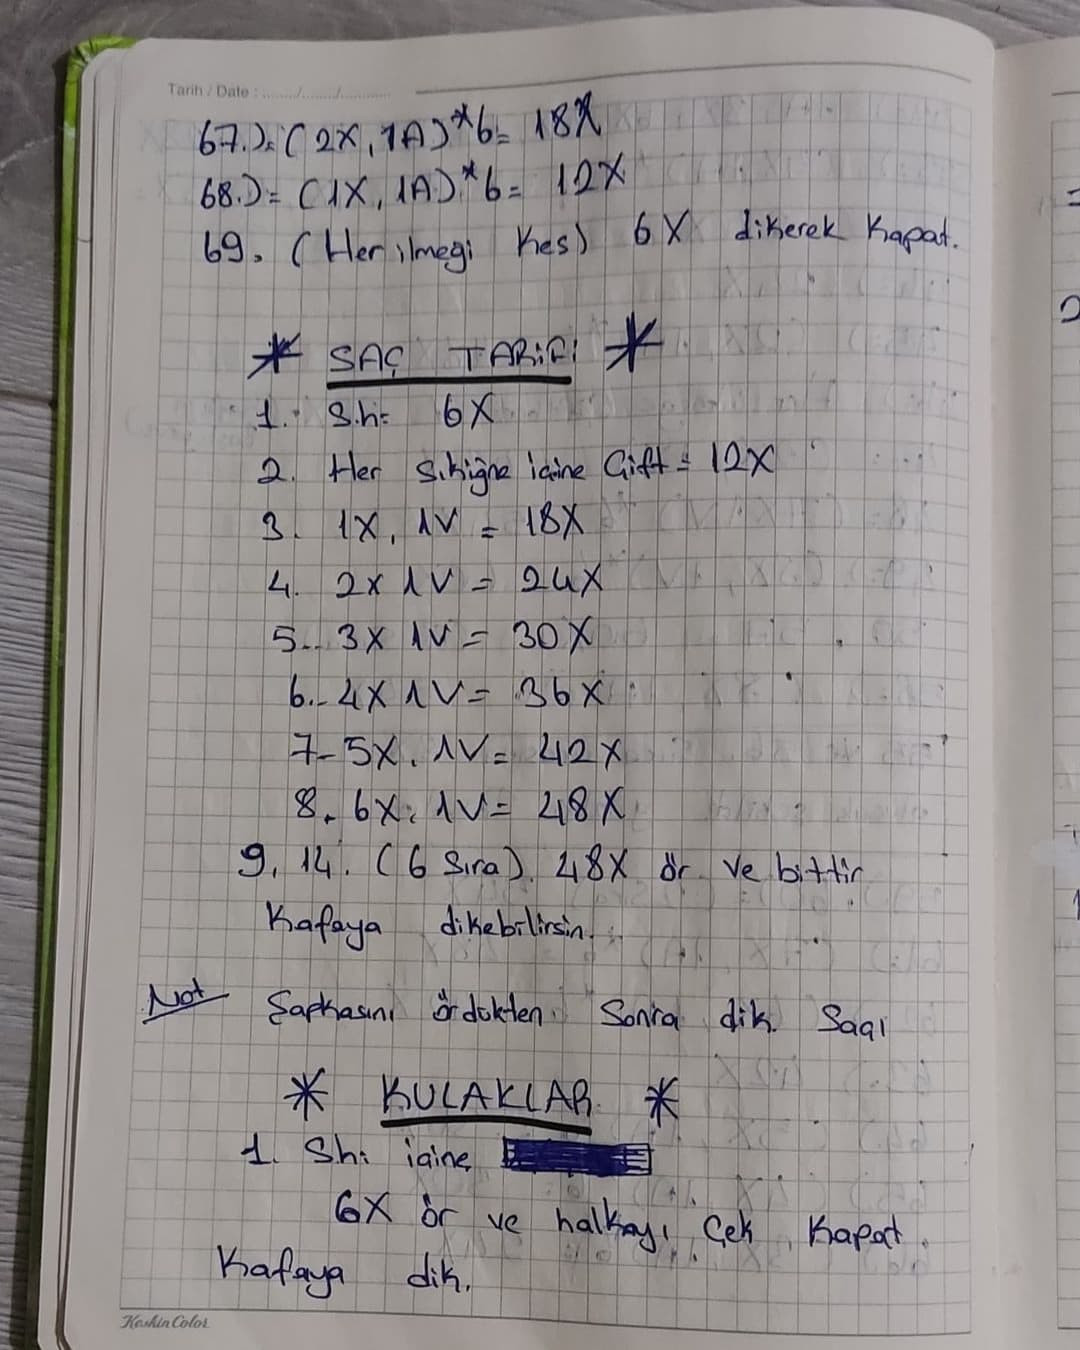 Tarih / Date : ......../......../............
67.)= (2X, 1A)*6= 18X
68.)= (1X, 1A)*6= 12X
69. (Her ilmegi Kes) 6X dikerek Kapat.
* SAÇ TARİFİ *
1. S.h= 6X
2. Her Sıkiğne içine Çift = 12X
3. 1X, 1V = 18X
4. 2X 1V = 24X
5.. 3X 1V = 30X
6.- 4X 1V= 36X
7- 5X, 1V= 42X
8. 6X, 1V= 48X
9, 14. (6 Sıra). 48X ör ve bittir
Kafaya dikebilirsin.
Not Şapkasını ördükten Sonra dik. Saçı
* KULAKLAR *
1. Sh: içine
6X ör ve halkayı Çek, Kapat.
Kafaya dik.
KeskinColor